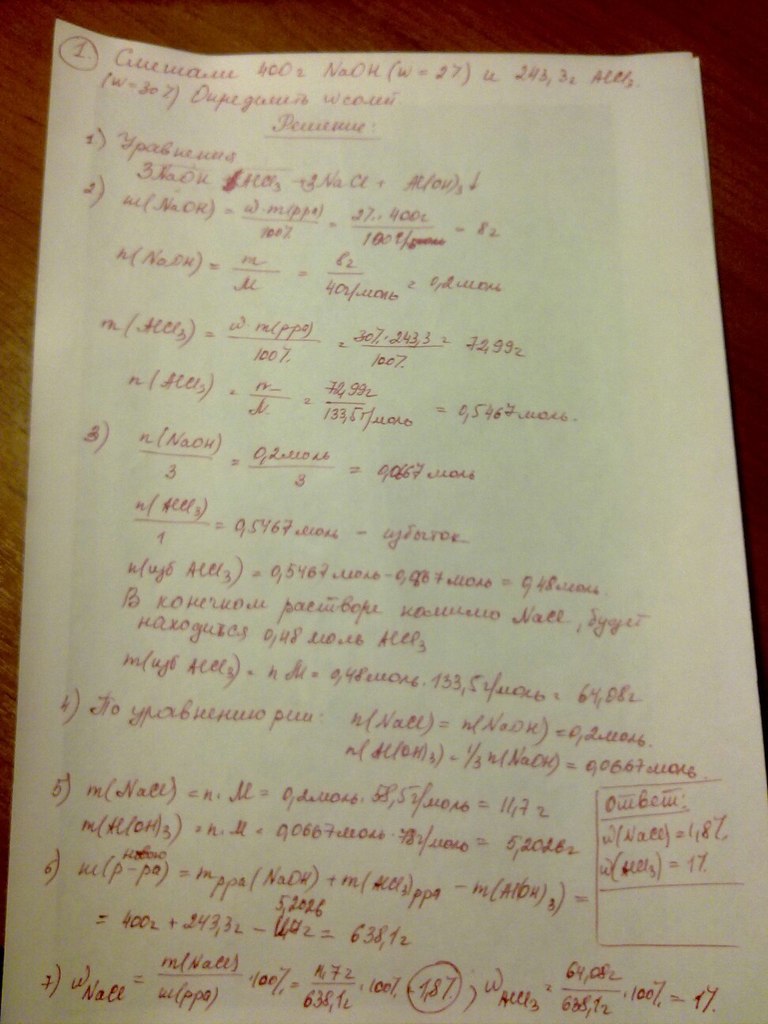 1. Смешали 400г NaOH (w = 2%) и 243,3г AlCl₃.
(w = 30%) Определить w солей
Решение:
1) Уравнения
3NaOH + AlCl₃ → 3NaCl + Al(OH)₃↓
2) m(NaOH) = w·m(рра)/100% = 2%·400г/100% = 8г
n(NaOH) = m/M = 8г/40г/моль = 0,2моль
m(AlCl₃) = w·m(рра)/100% = 30%·243,3/100% = 72,99г
n(AlCl₃) = m/M = 72,99г/133,5г/моль = 0,5467моль.
3) n(NaOH)/3 = 0,2моль/3 = 0,0667 моль
n(AlCl₃)/1 = 0,5467моль – избыток
n(изб AlCl₃) = 0,5467моль - 0,0667моль = 0,48моль.
В конечном растворе помимо NaCl, будет
находится 0,48 моль AlCl₃
m(изб AlCl₃) = n·M = 0,48моль·133,5г/моль = 64,08г
4) По уравнению рии: n(NaCl) = n(NaOH) = 0,2моль.
n(Al(OH)₃) = 1/3 n(NaOH) = 0,0667моль.
5) m(NaCl) = n·M = 0,2моль·58,5г/моль = 11,7г
m(Al(OH)₃) = n·M = 0,0667моль·78г/моль = 5,2026г
6) m(р-ра) нового = mрра(NaOH) + m(AlCl₃)рра - m(Al(OH)₃) =
= 400г + 243,3г - 5,2026г = 638,1г
7) wNaCl = m(NaCl)/m(рра)·100% = 11,7г/638,1г·100% = 1,8%; wAlCl₃ = 64,08г/638,1г·100% = 1%
Ответ:
w(NaCl) = 1,8%
w(AlCl₃) = 1%